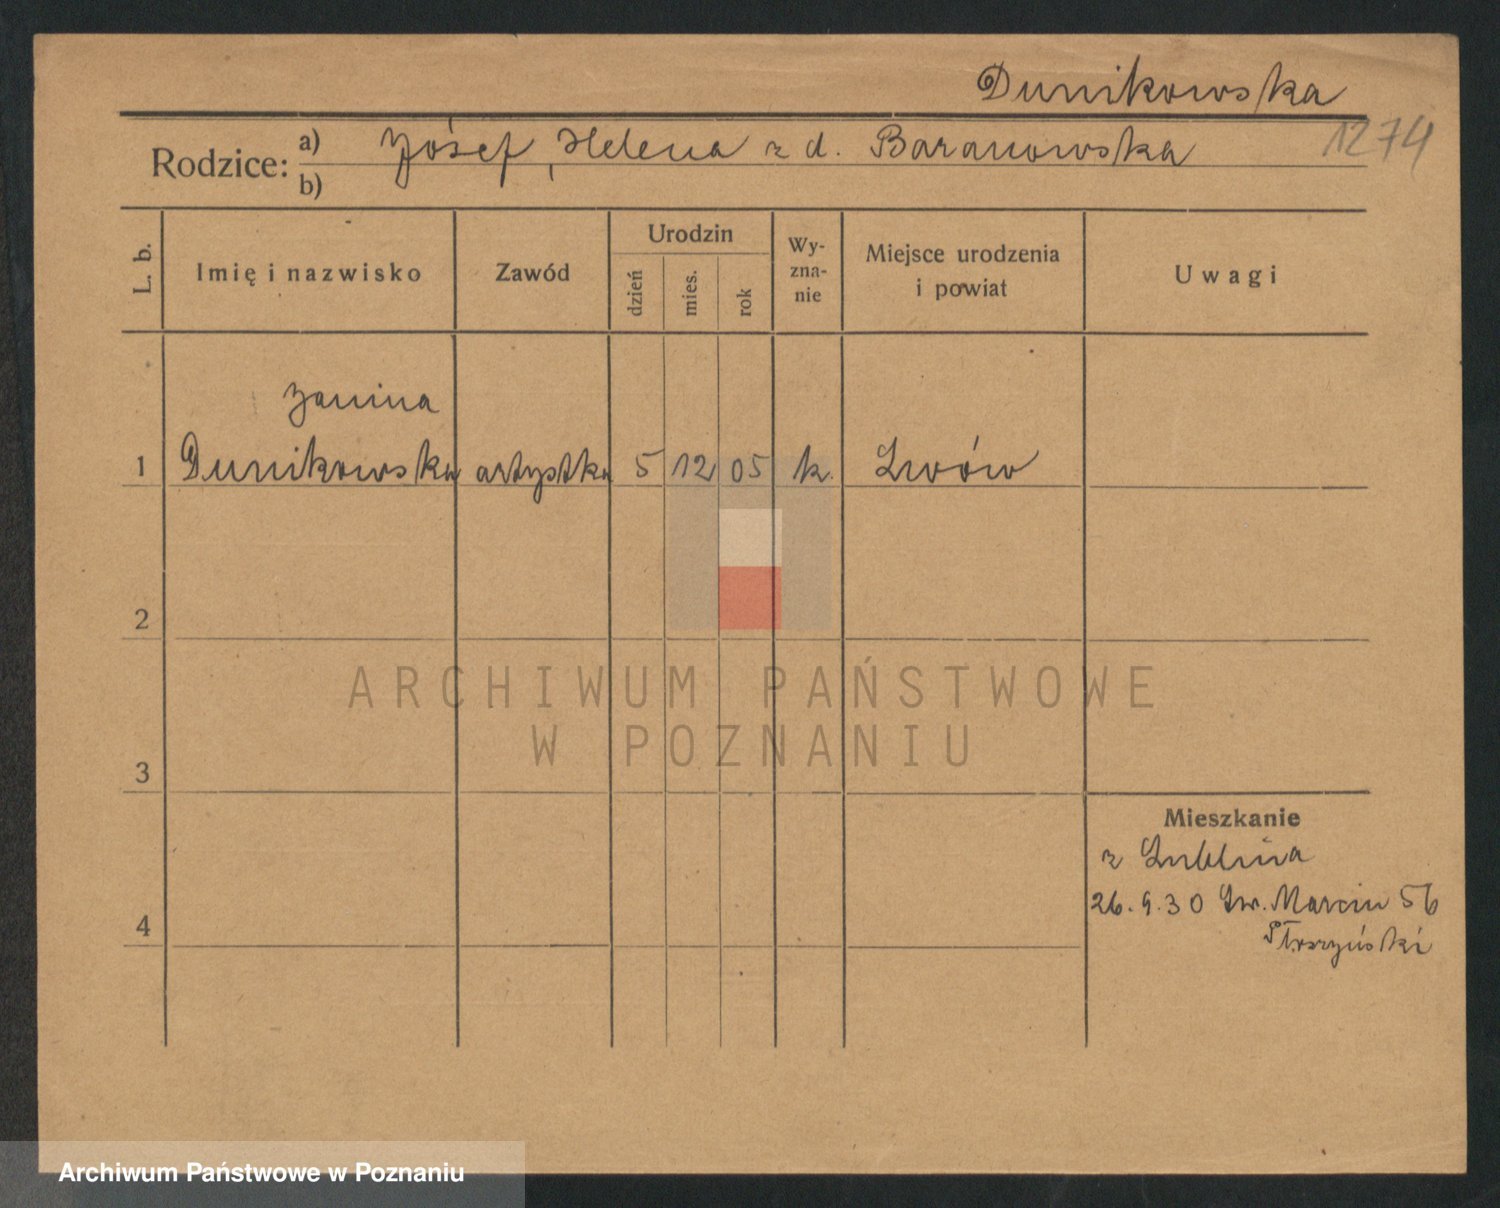 Dunikowska
1274
Rodzice: a) Józef, Helena z d. Baranowska
b)
L. b.
Imię i nazwisko
Zawód
Urodzin
dzień
mies.
rok
Wy-
zna-
nie
Miejsce urodzenia
i powiat
Uwagi
Janina
1 Dunikowska artystka 5 12 05 k. Lwów
2
3
4
Mieszkanie
z Lublina
26.9.30 Św. Marcin 56
ARCHIWUM PAŃSTWOWE
W POZNANIU
Archiwum Państwowe w Poznaniu